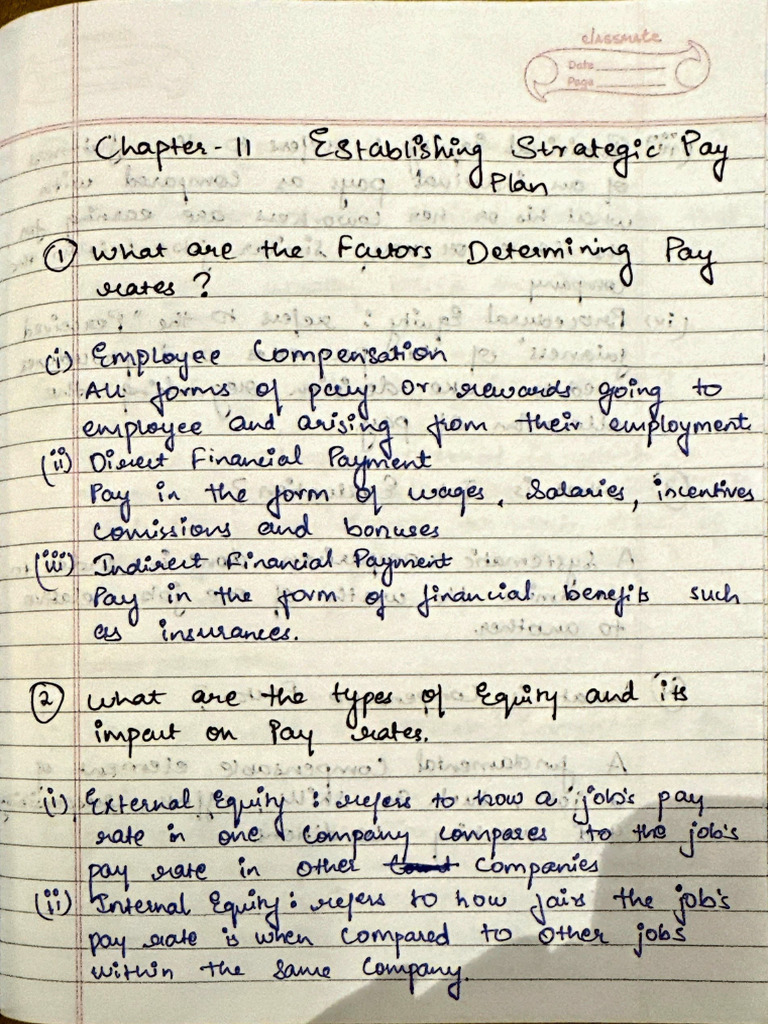 classmate
Date
Page
Chapter - 11 Establishing Strategic Pay
Plan
① What are the Factors Determining Pay
rates ?
(i) Employee Compensation
All forms of pay or rewards going to
employee and arising from their employment
(ii) Direct Financial Payment
Pay in the form of wages, Salaries, incentives
Comissions and bonuses
(iii) Indirect Financial Payment
Pay in the form of financial benefits such
as insurances.
② What are the types of Equity and its
impact on Pay rates.
(i) External Equity : refers to how a job's pay
rate in one Company compares to the job's
pay rate in other Companies
(ii) Internal Equity : refers to how fair the job's
pay rate is when Compared to Other jobs
within the Same Company.